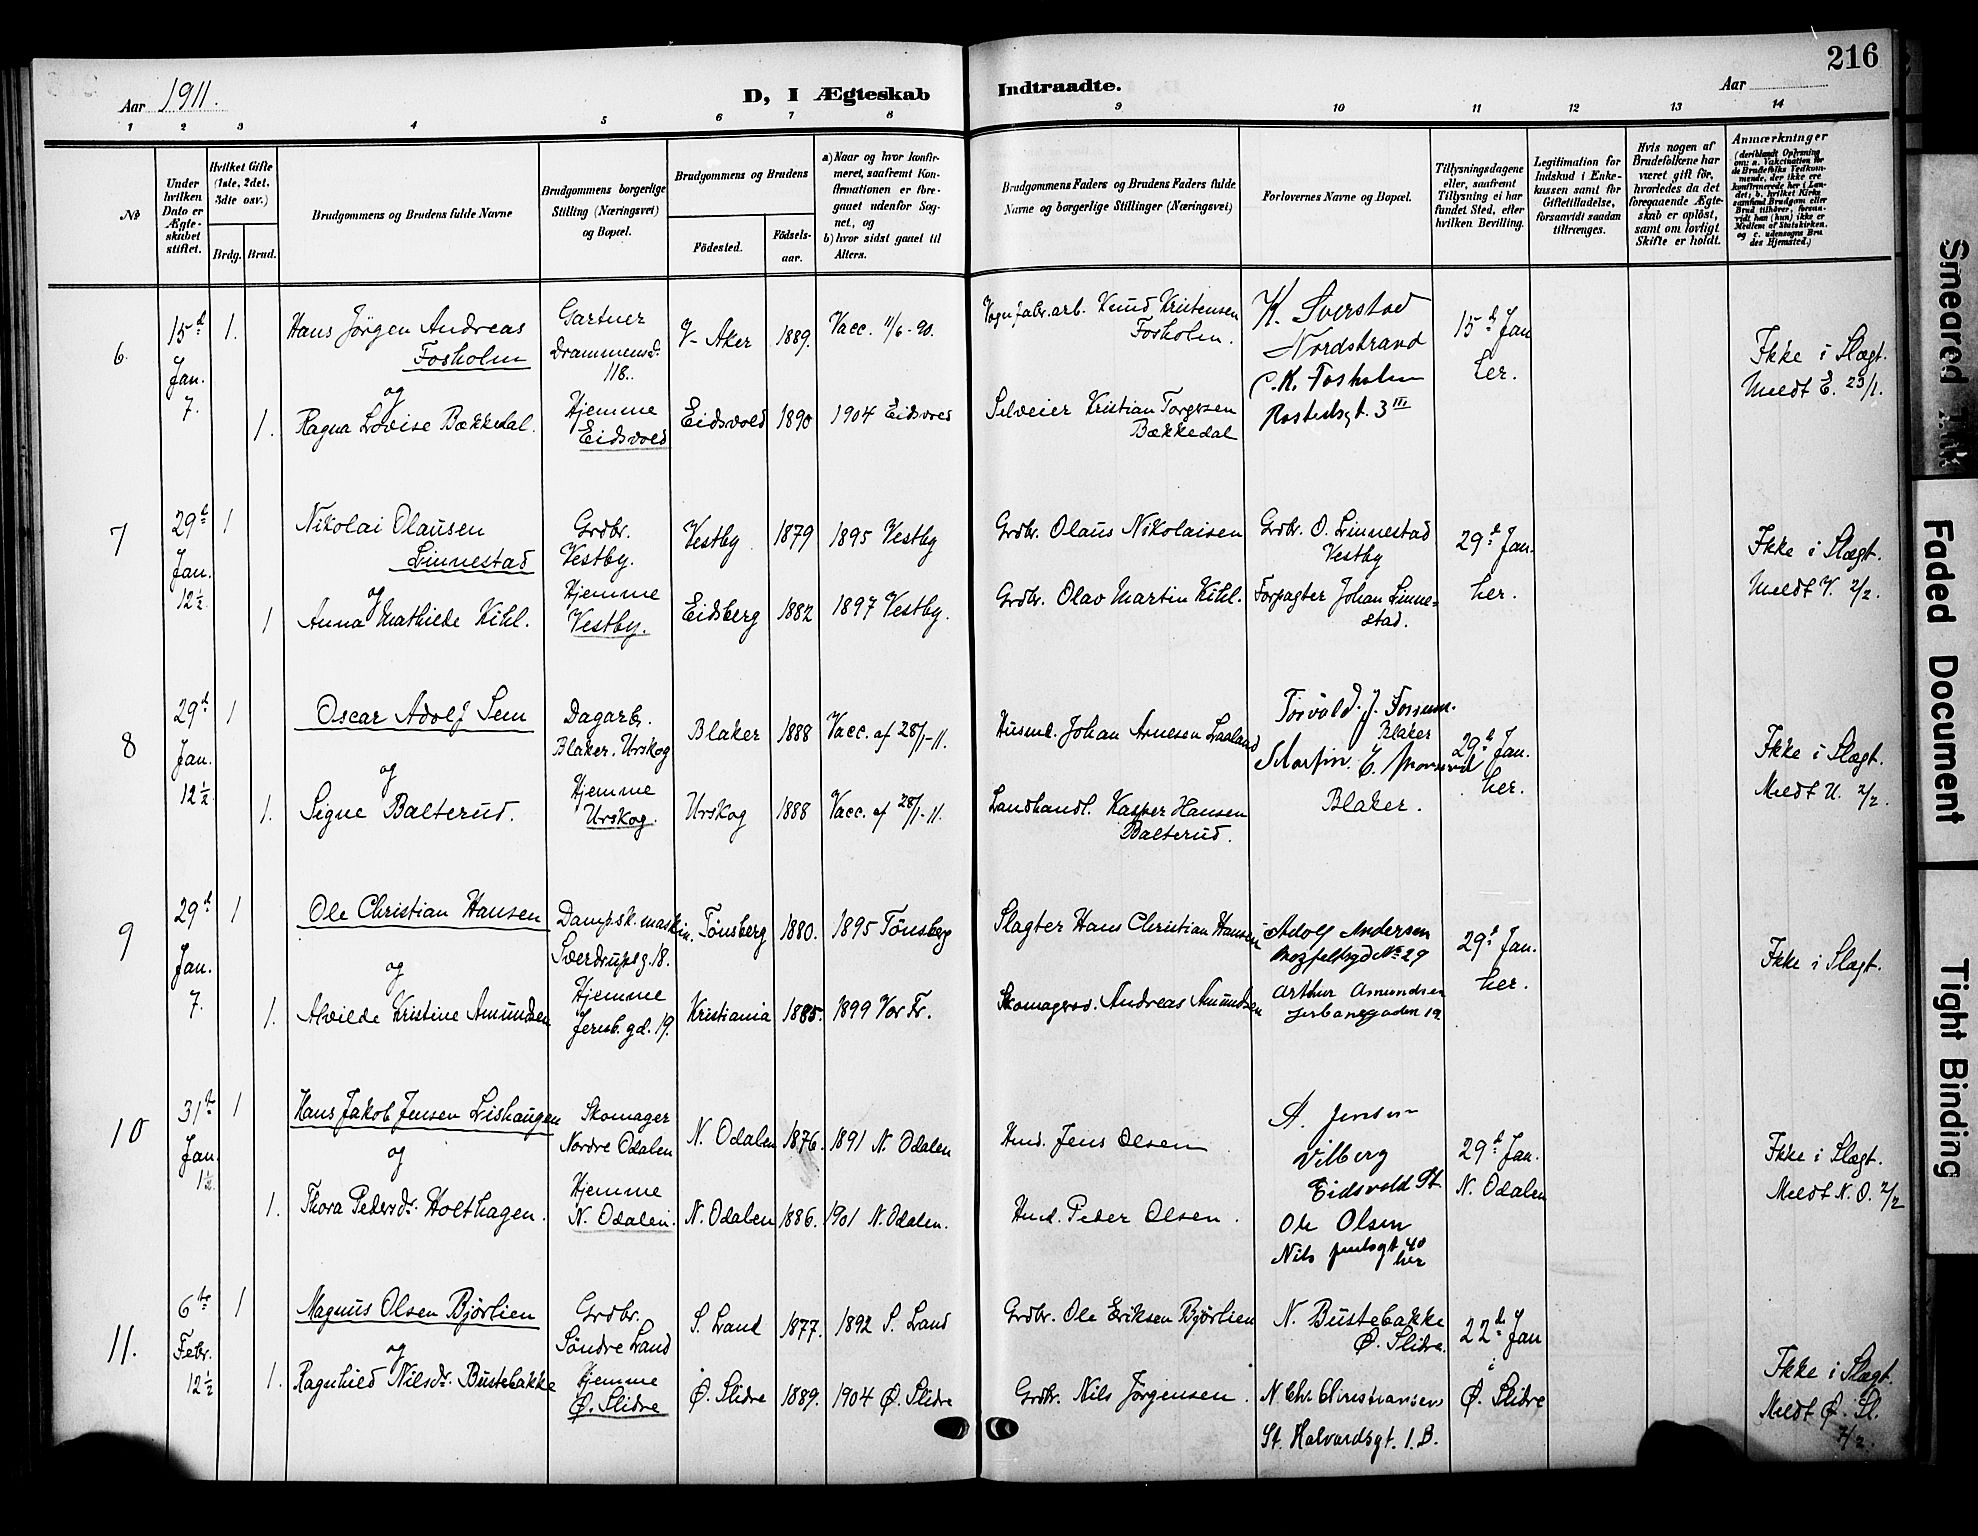 216
Aar 1911.
D, I Ægteskab
Indtraadte.
Aar
1 2 3 4 5 6 7 8 9 10 11 12 13 14
No
Under hvilken Dato er Ægteskabet stiftet.
Hvilket Gifte (1ste, 2det, 3die osv.)
Brdg. Brud.
Brudgommens og Brudens fulde Navne
Brudgommens borgerlige Stilling (Næringsvei) og Bopæl.
Brudgommens og Brudens
Födested.
Födselsaar.
a) Naar og hvor konfirmeret, saafremt Konfirmationen er foregaaet udenfor Sognet, og
b) hvor sidst gaaet til Alters.
Brudgommens Faders og Brudens Faders fulde Navne og borgerlige Stillinger (Næringsvei)
Forlovernes Navne og Bopæl.
Tillysningsdagene eller, saafremt Tillysning ei har fundet Sted, efter hvilken Bevilling.
Legitimation for Indskud i Enkekassen samt for Giftetilladelse, forsaavidt saadan tiltrænges.
Hvis nogen af Brudefolkene har været gift för, hvorledes da det foregaaende Ægteskab er oplöst, samt om lovligt Skifte er holdt.
Anmærkninger
(deriblandt Oplysning om: a. Vakcination for de Brudefolks Vedkommende, der ikke ere konfirmerede her i Landet; b. hvilket Kirkesamfund Brudgom eller Brud tilhörer, forsaavidt han (hun) ikke er Medlem af Statskirken, og c. udensogns Brudes Hjemsted.)
6. 15d Jan. 7. 1. Hans Jörgen Andreas Fosholm
Gartner Drammensv. 118.
V-Aker 1889. Vacc. 11/6-90.
Vognfabr.arb. Knud Kristensen Fosholm.
K. Sverstad Nordstrand
15d Jan her.
Ikke i Slægt.
Meldt E. 23/1.
og
1. Ragna Lovise Bækkedal.
Hjemme Eidsvold
Eidsvold 1890 1904 Eidsvold
Kristian Torgersen Bækkedal
C. K. Fosholm
3 III
7 29d Jan. 12½ 1 Nikolai Olausen Linnestad
Grdbr. Vestby.
Vestby 1879 1895 Vestby
Grdbr. Olaus Nikolaisen
Grdbr. O. Linnestad Vestby
29d Jan. her.
Ikke i Slægt.
Meldt V. 2/2.
og
1 Anna Mathilde Kihl.
Hjemme Vestby.
Eidsberg 1882 1897 Vestby.
Grdbr. Olav Martin Kihl.
Forpagter Johan Linnestad.
8 29d Jan. 12½ 1 Oscar Adolf Sem
Dagarb. Blaker. Urskog
Blaker 1888 Vacc. af 28/1-11.
Husm. Johan Arnesen
Torvald J. Fossum. Blaker
29d Jan. her.
Ikke i Slægt.
Meldt U. 2/2.
og
1. Signe Balterud.
Hjemme Urskog.
Urskog 1888 Vacc. af 28/1-11.
Landhandl. Kasper Hansen Balterud.
Martin E.
Blaker.
9 29d Jan. 7. 1 Ole Christian Hansen
Dampsk. maskin. Sverdrupsg. 18.
Tönsberg 1880. 1895 Tönsberg
Slagter Hans Christian Hansen
Adolf Andersen
No 29
29d Jan. her.
Ikke i Slægt.
og
1. Alvilde Kristine Amundsen
Hjemme Jernb.gd. 19.
Kristiania 1885. 1899 Vor Fr.
Andreas Amundsen
Arthur Amundsen
19
10 31te Jan. 1½. 1 Hans Jakob Jensen Lishaugen
Skomager Nordre Odalen
N. Odalen 1876. 1891 N. Odalen
Jens Olsen
A. Jensen Vilberg Eidsvold St.
29d Jan. N. Odalen
Ikke i Slægt.
Meldt N. O. 2/2
og
1. Thora Pedersdr. Holthagen.
Hjemme N. Odalen.
N. Odalen 1886. 1901 N. Odalen.
Peder Olsen.
Ole Olsen Nils Juelsgt 40 her
11. 6te Febr. 12½ 1 Magnus Olsen Björlien
Grdbr. Söndre Land
S. Land 1877. 1892 S. Land
Grdbr. Ole Eriksen Björlien
N. Bustebakke Ø. Slidre.
22d Jan i Ø. Slidre
Ikke i Slægt.
Meldt Ø. Sl. 7/2.
og
1. Ragnhild Nilsdr. Bustebakke
Hjemme Ø. Slidre
Ø. Slidre 1889. 1904 Ø. Slidre
Grdbr. Nils Jörgensen.
N. Chr. Christiansen
St. Halvardsgt. 1. B.
Smeared Ink
Faded Document
Tight Binding